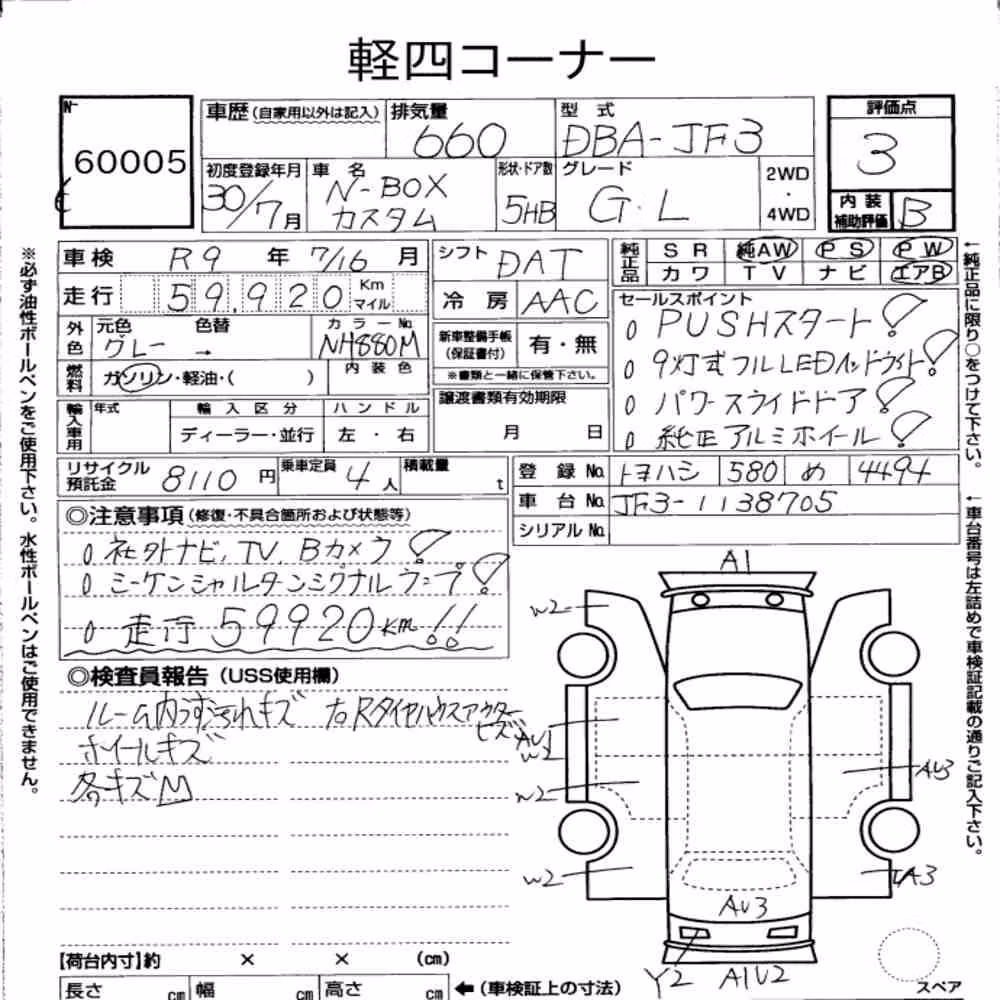 軽四コーナー
No.
60005
車歴 (自家用以外は記入)
排気量
660
型式
DBA-JF3
評価点
3
初度登録年月
30/7月
車名
N-BOX
カスタム
形状・ドア数
5HB
グレード
G・L
2WD
・
4WD
内装
補助評価
B
車検 R9 年 7/16 月
シフト DAT
純正品
SR 純AW PS PW
カワ TV ナビ エアB
走行 59,920 Km
マイル
冷房 AAC
外色
元色 グレー
色替 →
カラーNo. NH880M
燃料
ガソリン・軽油・( )
内装色
新車整備手帳
(保証書付)
有・無
※書類と一緒に保管下さい。
セールスポイント
0 PUSHスタート!
0 9灯式フルLEDヘッドライト!
0 パワースライドドア!
0 純正アルミホイール!
輸入車用
年式
輸入区分
ディーラー・並行
ハンドル
左・右
譲渡書類有効期限
月 日
リサイクル
預託金
8110 円
乗車定員
4人
積載量
t
登録No. トヨハシ 580 め 4494
車台No. JF3-1138705
シリアルNo.
◎注意事項 (修復・不具合箇所および状態等)
0 社外ナビ, TV, Bカメラ!
0 シーケンシャルターンシグナルランプ!
0 走行59920km!!
◎検査員報告 (USS使用欄)
ルーム内うすよごれキズ
右Rタイヤハウスアウター
ヒズミ
ホイールキズ
各キズM
A1
W2
AU1
W2
W2
W2
AU3
LA3
AU3
Y2
A1U2
スペア
【荷台内寸】約 × × (cm)
長さ cm
幅 cm
高さ cm
←(車検証上の寸法)
※必ず油性ボールペンをご使用下さい。水性ボールペンはご使用できません。
←純正品に限り○をつけて下さい。
←車台番号は左詰めで車検証記載の通りご記入下さい。